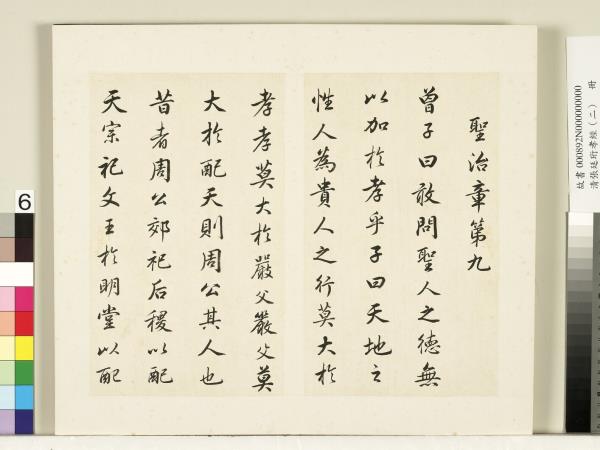 聖治章第九
曾子曰敢問聖人之德無
以加於孝乎子曰天地之
性人為貴人之行莫大於
孝孝莫大於嚴父嚴父莫
大於配天則周公其人也
昔者周公郊祀后稷以配
天宗祀文王於明堂以配
6
故書 000892N000000000
清張廷玠孝經(二) 冊